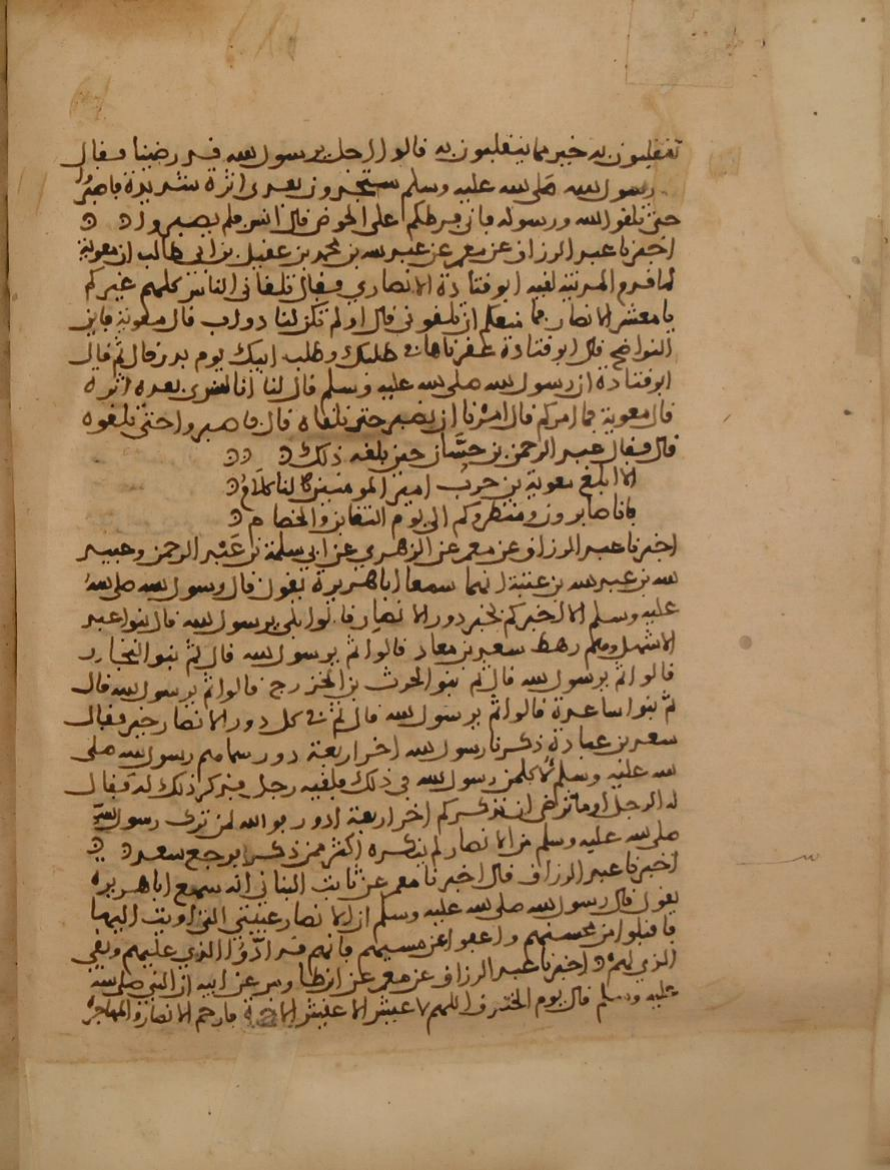 تنقلبون به خير مما ينقلبون به قالوا اجل يرسول الله قد رضينا فقال
رسول الله صلى الله عليه وسلم ستجدون بعدي اثرة شديدة فاصبروا
حتى تلقوا الله ورسوله فاني فرطكم على الحوض قال انس فلم يصبروا
اخبرنا عبد الرزاق عن معمر عن عبد الله بن محمد بن عقيل بن ابي طالب ان معوية
لما قدم المدينة لقيه ابو قتادة الانصاري فقال تلقاني الناس كلهم غيركم
يا معشر الانصار فما منعكم ان تلقوني قال او لم تكن لنا دواب قال معوية فاين
النواضح قال ابو قتادة عقرناها في طلبك وطلب ابيك يوم بدر قال ثم قال
ابو قتادة ان رسول الله صلى الله عليه وسلم قال لنا انا لنرى بعده اثرة
قال معوية فما امركم قال امرنا ان نصبر حتى نلقاه قال فاصبروا حتى تلقوه
قال فقال عبد الرحمن بن حسّان حين بلغه ذلك
الا ابلغ معوية بن حرب امير المومنين لنا كلام
بانا صابرون ومنتظروكم الى يوم التغابن والخصام
اخبرنا عبد الرزاق عن معمر عن الزهري عن ابي سلمة بن عبد الرحمن وعبيد
الله بن عبد الله بن عتبة انهما سمعا ابا هريرة يقول قال رسول الله صلى الله
عليه وسلم الا اخبركم بخير دور الانصار قالوا بلى يرسول الله قال بنوا عبد
الاشهل وهم رهط سعد بن معاذ قالوا ثم يرسول الله قال ثم بنوا النجار
قالوا ثم يرسول الله قال ثم بنوا الحرث بن الخزرج قالوا ثم يرسول الله قال
ثم بنوا ساعدة قالوا ثم يرسول الله قال ثم في كل دور الانصار خير فقال
سعد بن عبادة ذكرنا رسول الله اخر اربعة دور سماهم رسول الله صلى
الله عليه وسلم لاكلمن رسول الله في ذلك فلقيه رجل فذكر ذلك له فقال
له الرجل اوما ترضى ان يذكركم اخر اربعة ادور فوالله لمن ترك رسول الله
صلى الله عليه وسلم من الانصار لم يذكره اكثر ممن ذكر فرجع سعد
اخبرنا عبد الرزاق قال اخبرنا معمر عن ثابت البناني انه سمع ابا هريرة
يقول قال رسول الله صلى الله عليه وسلم ان الانصار عيبتي التي اويت اليها
فاقبلوا من محسنهم واعفوا عن مسيهم فانهم قد ادّوا الذي عليهم وبقي
الذي لهم اخبرنا عبد الرزاق عن معمر عن ابن طاوس عن ابيه ان النبي صلى الله
عليه وسلم قال يوم الخندق اللهم لا عيش الا عيش الاخرة فارحم الانصار والمهاجرة